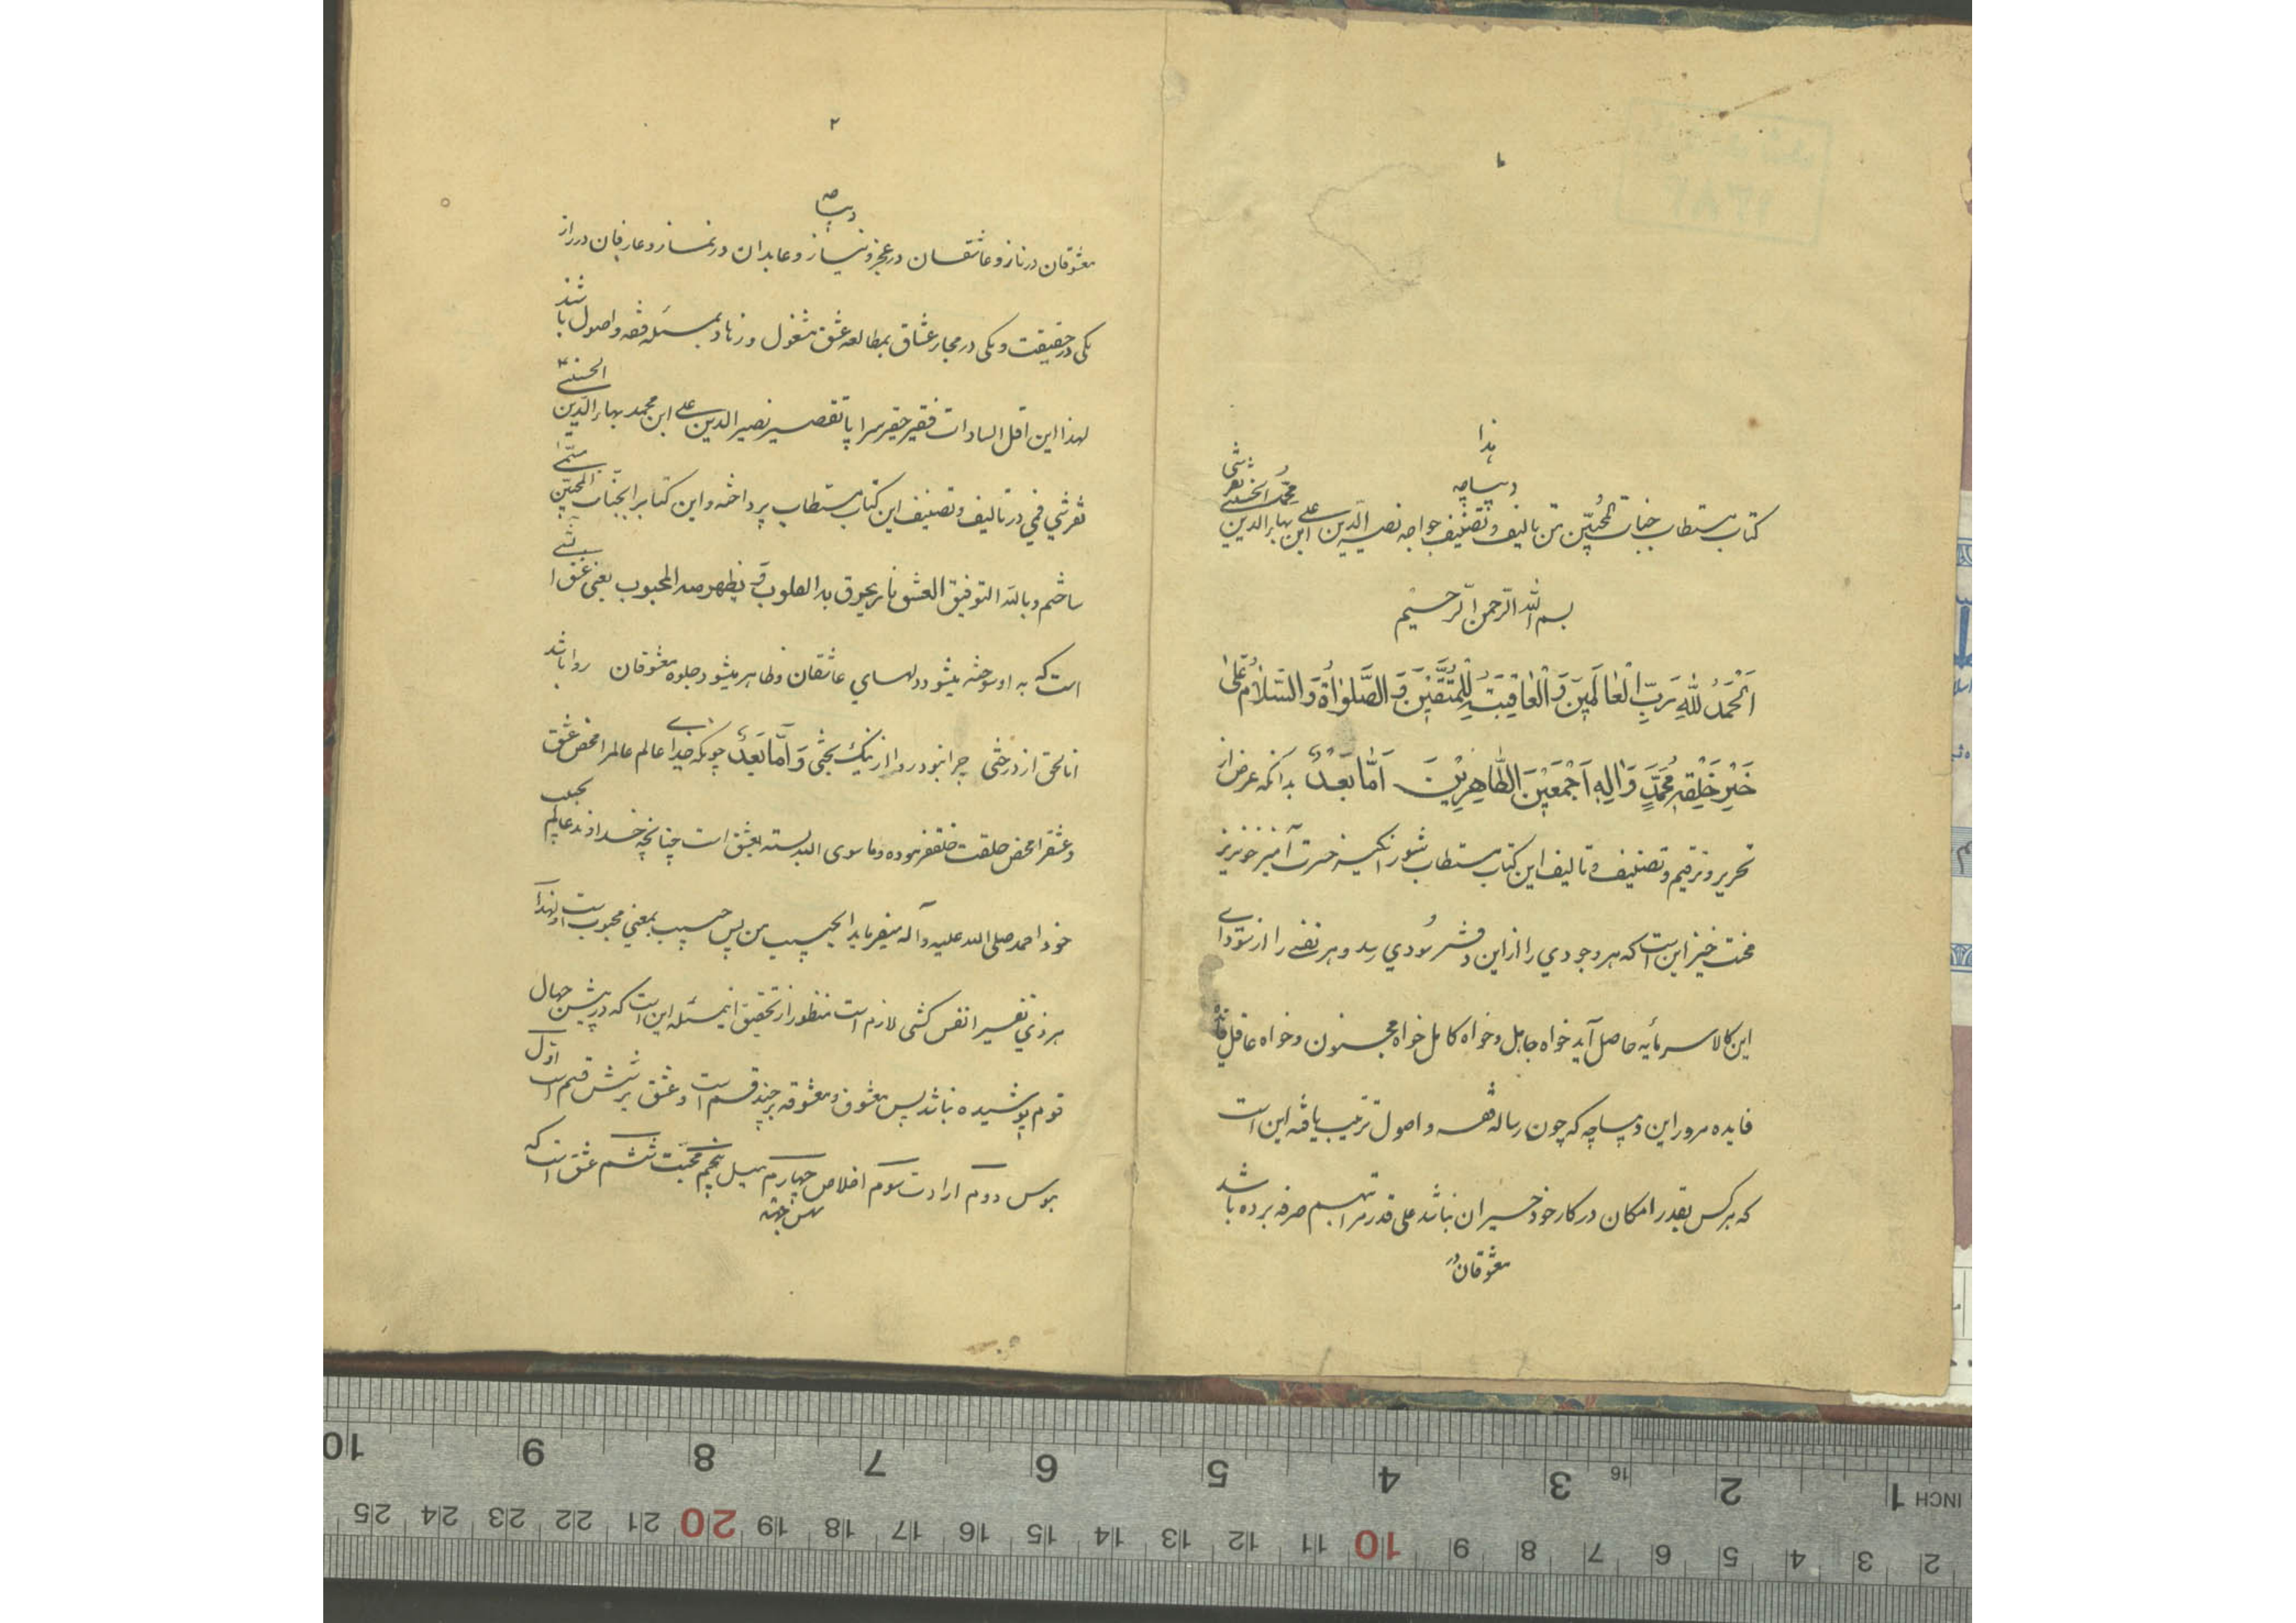 ۱
هذا
دیباچه
کتاب مستطاب جنات المحبین من تالیف و تصنیف خواجه نصیر الدین علی ابن بهاء الدین محمد الحسینی تفرشی
بسم الله الرحمن الرحیم
اَلْحَمْدُ لِلّٰهِ رَبِّ الْعٰالَمینَ وَ الْعٰاقِبَةُ لِلْمُتَّقینَ وَ الصَّلوٰاةُ وَ السَّلامُ عَلیٰ
خَیْرِ خَلْقِهِ مُحَمَّدٍ وَ اٰلِهِ اَجْمَعینَ الطّاهِرینَ اَمّا بَعْدُ بدانکه غرض از
تحریر و ترقیم و تصنیف و تالیف این کتاب مستطاب شورانگیز حسرت آمیز خونریز
محنت خیز این است که هر وجودی را از این دفتر سودی رسد و هر نفسی را از سودای
این کالا سرمایه حاصل آید خواه جاهل و خواه کامل خواه مجنون و خواه عاقل
فایده مرور این دیباچه که چون رساله فقه و اصول ترتیب یافته این است
که هر کس بقدر امکان در کار خود حیران نباشد علی قدر مراتبهم صرفه برده باشد
معشوقان در
۲
دیباچه
معشوقان در ناز و عاشقان در عجز و نیاز و عابدان در نماز و عارفان در راز
یکی در حقیقت و یکی در مجاز عشاق بمطالعه عشق مشغول و زهاد بمسئله فقه و اصول باشند
لهذا این اقل السادات فقیر حقیر سراپا تقصیر نصیر الدین علی ابن محمد بهاء الدین الحسینی
تفرشی قمی در تالیف و تصنیف این کتاب مستطاب پرداخته و این کتابرا بجنات المحبین مسمی
ساختم و بالله التوفیق العشق نار یحرق به القلوب و یظهر منه المحبوب یعنی عشق آتشی
است که به او سوخته میشود دلهای عاشقان و ظاهر میشود جلوه معشوقان روا باشد
انا الحق از درختی چرا نبود روا از نیک بختی وَ اَمّا بَعْدُ چونکه خدای عالم عالمرا محض عشق
و عشقرا محض خلقت خلق فرموده و ما سوی الله بسته بعشق است چنانچه خداوند عالم بحبیب
خود احمد صلی الله علیه و آله میفرماید الحبیب من پس حبیب بمعنی محبوب است و لهذا
هر ذی نفسیرا نفس کشی لازم است منظور از تحقیق اینمسئله این است که در پیش جهال
قوم پوشیده نباشد پس معشوق و معشوقه بر چند قسم است و عشق بر شش قسم است اول
هوس دوم ارادت سوم اخلاص چهارم میل پنجم محبت ششم عشق است که